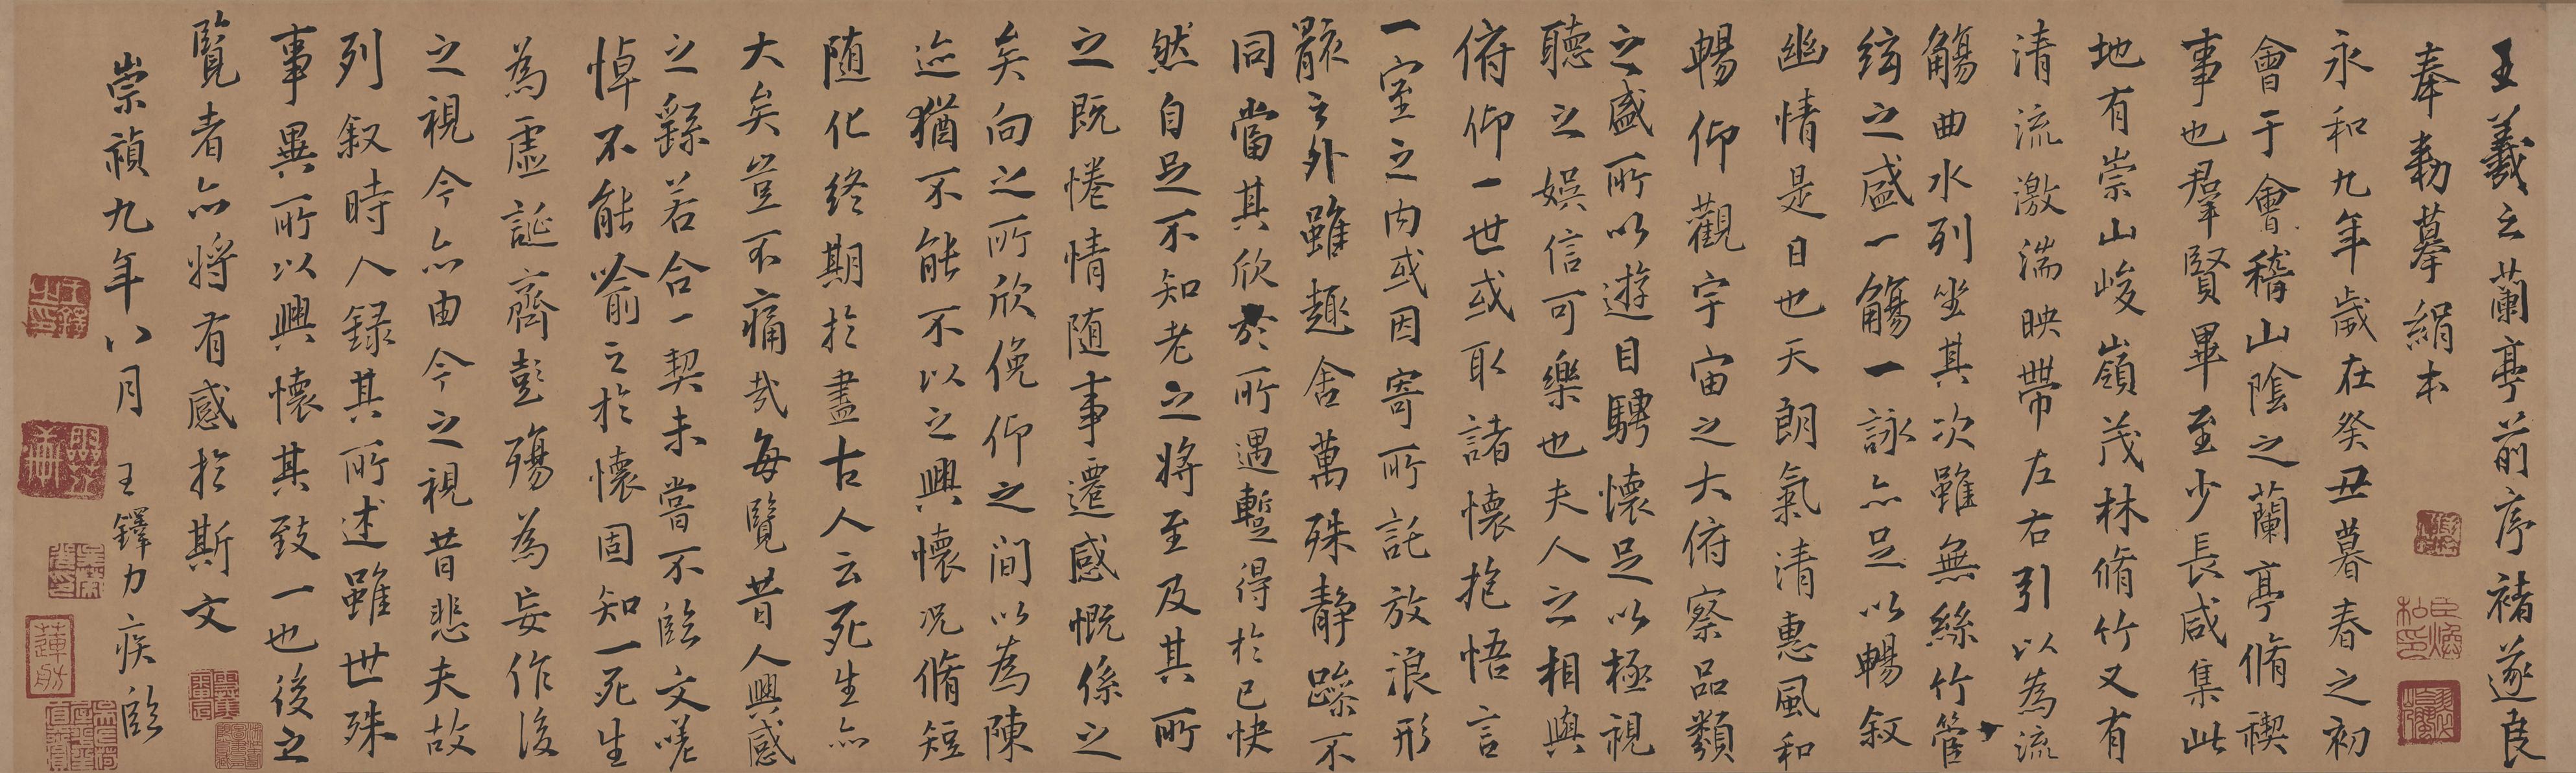 王羲之蘭亭前序褚遂良
奉勅摹絹本
永和九年歲在癸丑暮春之初
會于會稽山陰之蘭亭脩禊
事也羣賢畢至少長咸集此
地有崇山峻嶺茂林脩竹又有
清流激湍映帶左右引以為流
觴曲水列坐其次雖無絲竹管
絃之盛一觴一詠亦足以暢叙
幽情是日也天朗氣清惠風和
暢仰觀宇宙之大俯察品類
之盛所以遊目騁懷足以極視
聽之娛信可樂也夫人之相與
俯仰一世或取諸懷抱悟言
一室之内或因寄所託放浪形
骸之外雖趣舍萬殊静躁不
同當其欣於所遇蹔得於己快
然自足不知老之將至及其所
之既惓情随事遷感慨係之
矣向之所欣俛仰之間以為陳
迹猶不能不以之興懷况脩短
随化終期於盡古人云死生亦
大矣豈不痛哉每覽昔人興感
之繇若合一契未嘗不臨文嗟
悼不能喻之於懷固知一死生
為虛誕齊彭殤為妄作後
之視今亦由今之視昔悲夫故
列叙時人録其所述雖世殊
事異所以興懷其致一也後之
覽者亦將有感於斯文
崇禎九年八月 王鐸力疾臨
王鐸之印
蓮舫